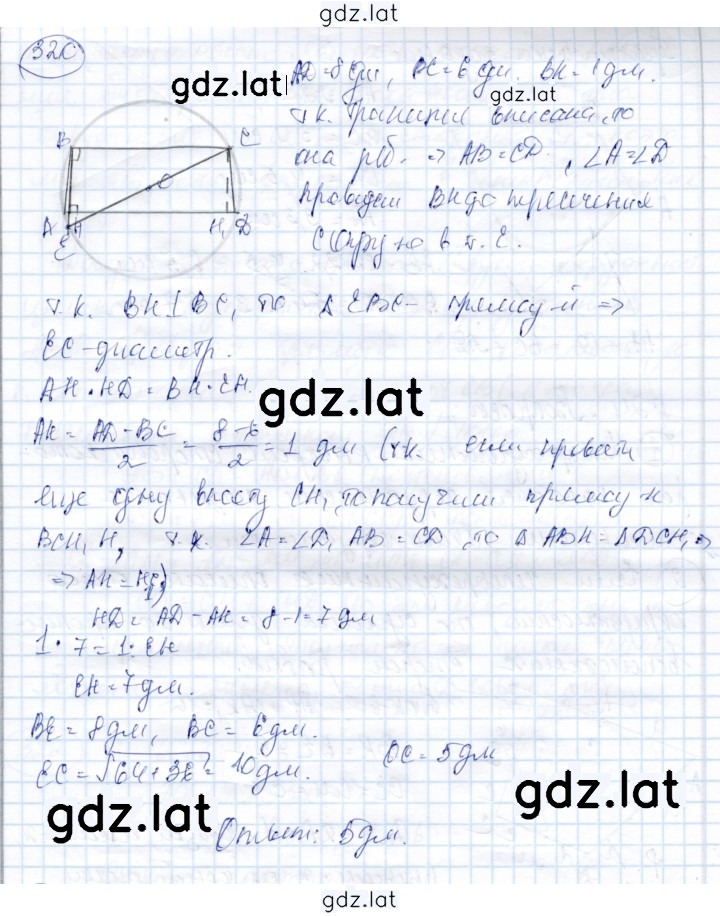 gdz.lat
320
AD=8 дм, BC=6 дм. BH=1 дм.
gdz.lat
gdz.lat
т.к. трапеция вписана, то
она р/б. => AB=CD, ∠A=∠D
B C
O
A H H₁ D
E
Проведем BH до пересечения
с окру-ю в т. E.
т.к. BH⊥BC, то Δ EBC - прямоу-й =>
EC - диаметр.
AH·HD = BH·EH.
gdz.lat
AH = AD-BC/2 = 8-6/2 = 1 дм (т.к. если провести
еще одну высоту CH₁, то получим прямоу-к
BCH₁H, т.к. ∠A=∠D, AB=CD, то Δ ABH = ΔDCH₁ =>
=> AH = H₁D)
HD = AD-AH = 8-1=7 дм
1·7=1·EH
EH=7дм.
BE=8дм, BC=6дм.
EC=√64+36=10дм. OC=5дм
gdz.lat
gdz.lat
Ответ: 5дм.
gdz.lat